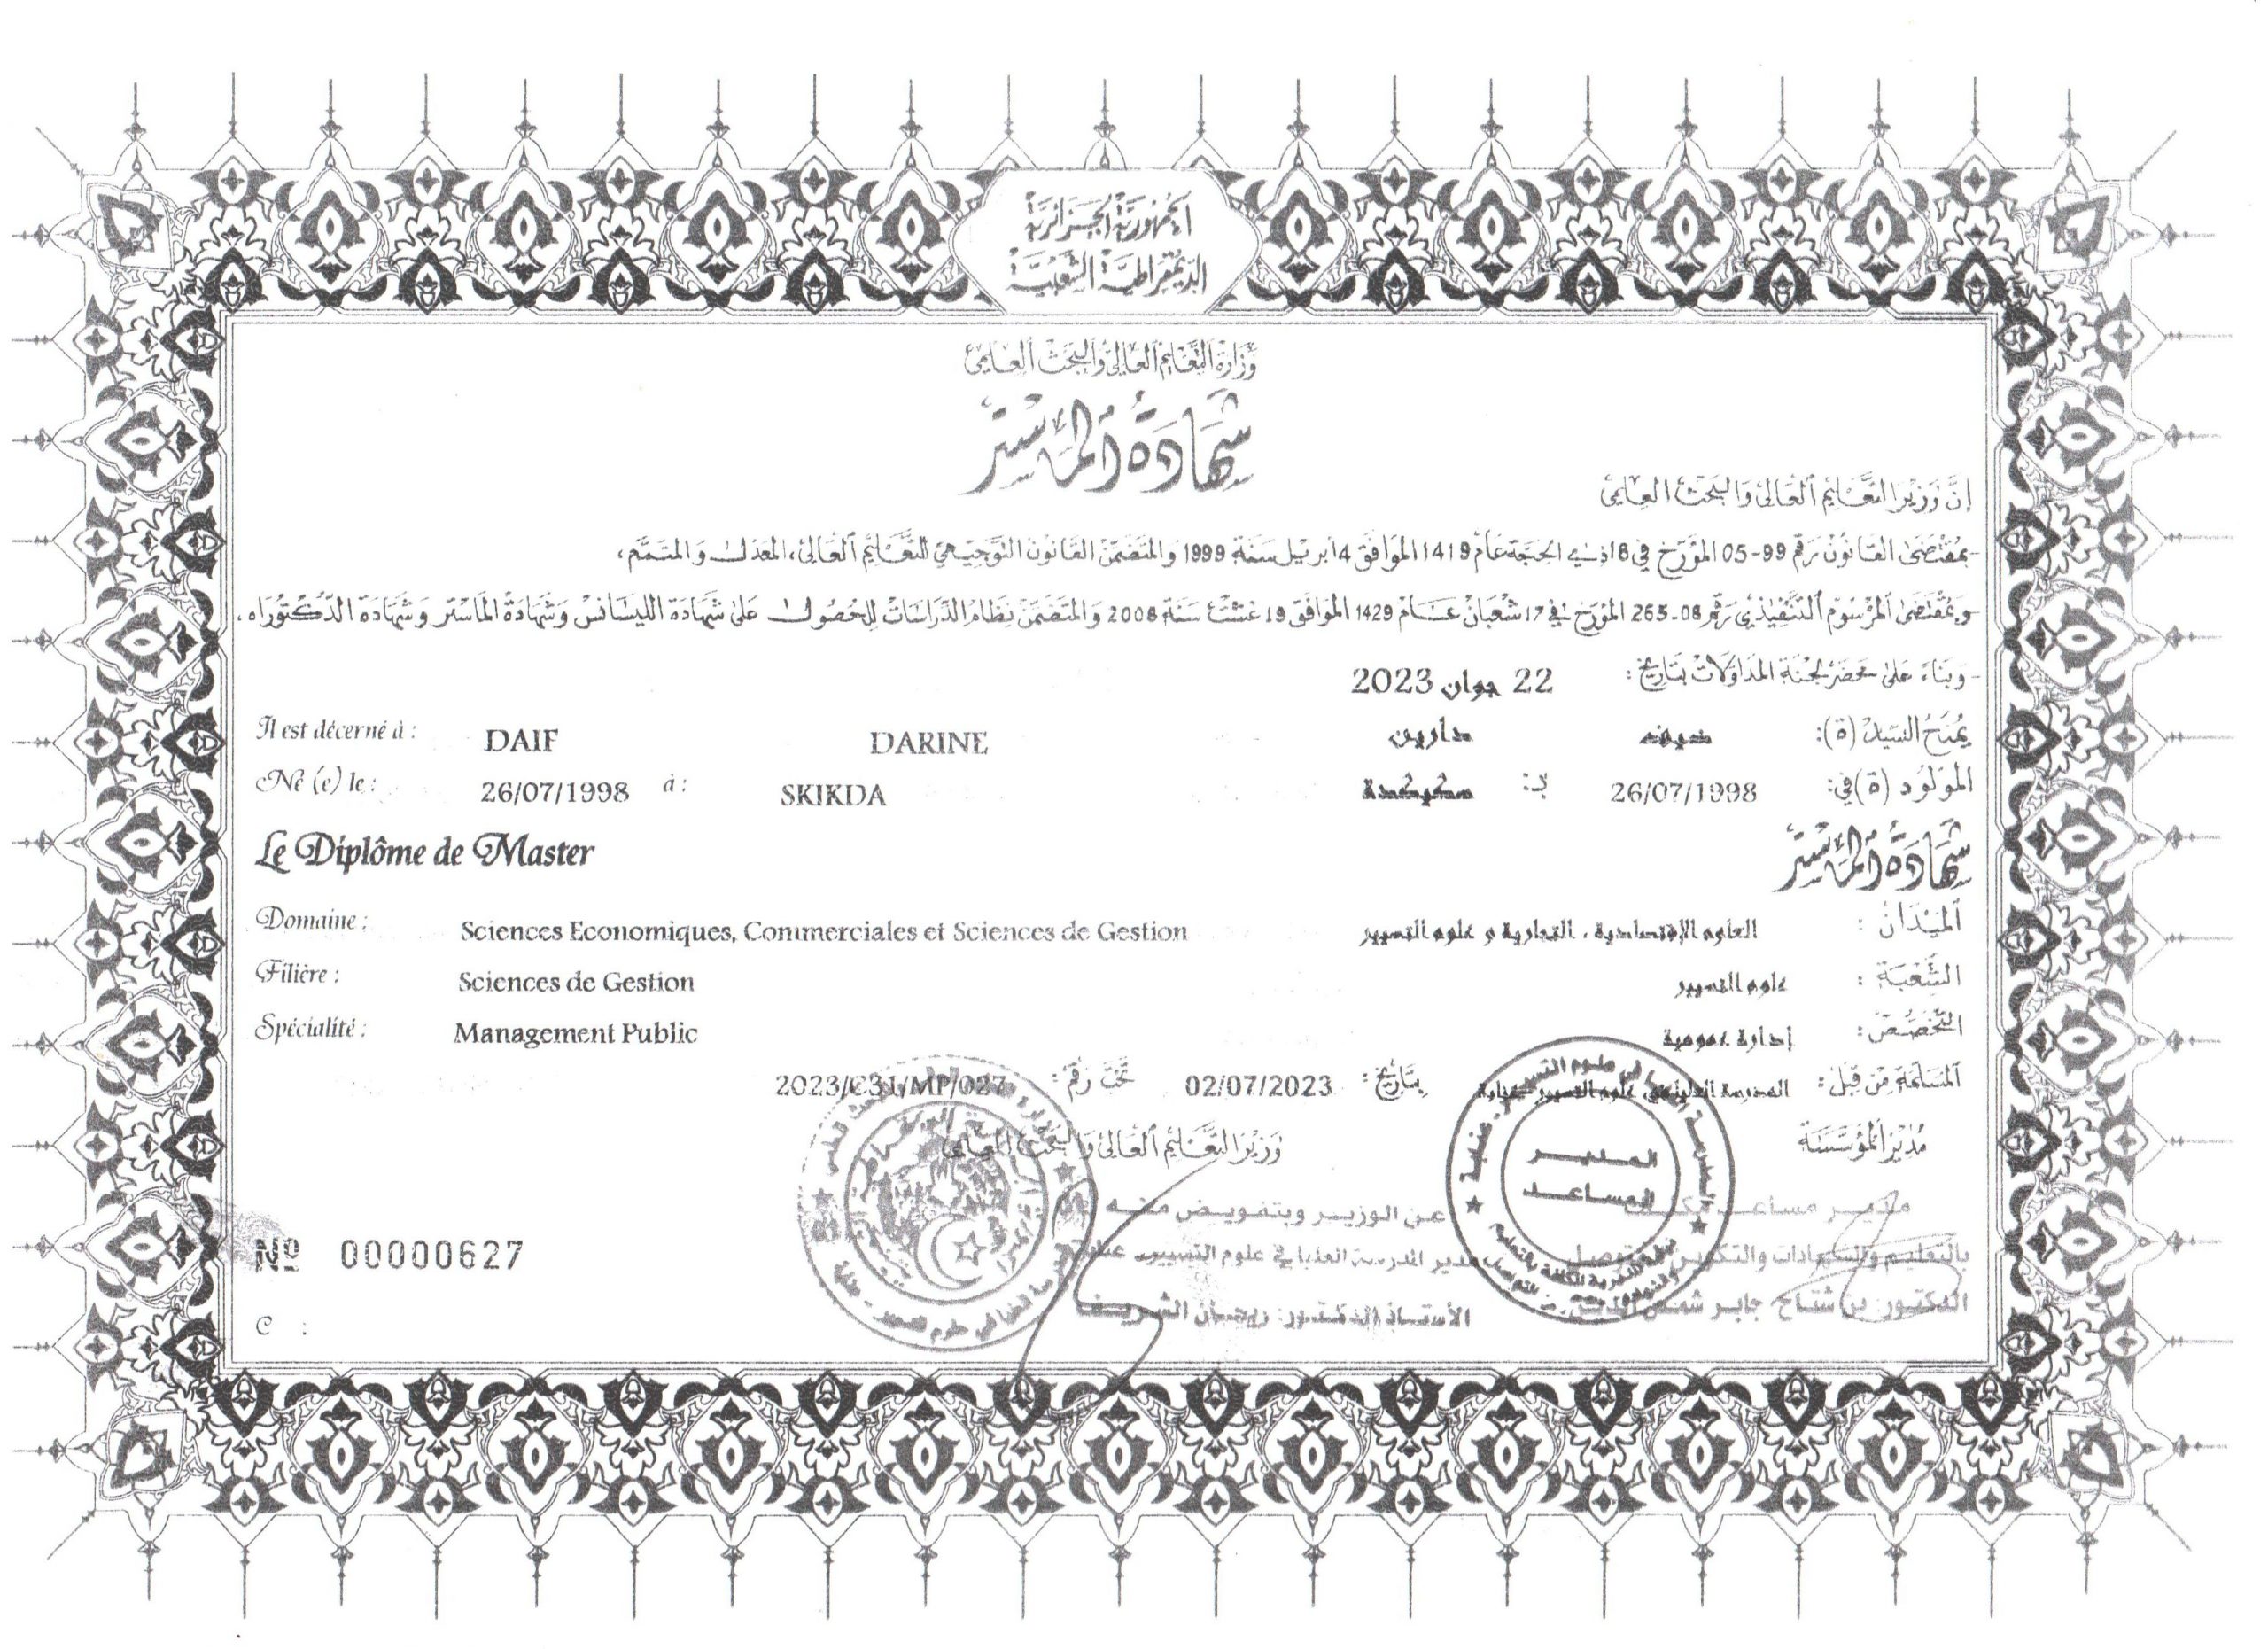 الجمهورية الجزائرية
الديمقراطية الشعبية
وزارة التعليم العالي والبحث العلمي
شهادة الماستر
إن وزير التعليم العالي والبحث العلمي
- بمقتضى القانون رقم 99-05 المؤرخ في 18 ذي الحجة عام 1419 الموافق 4 أبريل سنة 1999 والمتضمن القانون التوجيهي للتعليم العالي، المعدل والمتمم،
- وبمقتضى المرسوم التنفيذي رقم 08-265 المؤرخ في 17 شعبان عام 1429 الموافق 19 غشت سنة 2008 والمتضمن نظام الدراسات للحصول على شهادة الليسانس وشهادة الماستر وشهادة الدكتوراه،
- وبناء على محضر لجنة المداولات بتاريخ: 22 جوان 2023
يمنح السيد (ة): ضيف دارين
Il est décerné à : DAIF DARINE
المولود (ة) في: 26/07/1998 بـ: سكيكدة
Né (e) le : 26/07/1998 à : SKIKDA
شهادة الماستر
Le Diplôme de Master
الميدان : العلوم الإقتصادية ، التجارية و علوم التسيير
Domaine : Sciences Economiques, Commerciales et Sciences de Gestion
الشعبة : علوم التسيير
Filière : Sciences de Gestion
التخصص: إدارة عمومية
Spécialité : Management Public
المسلمة من قبل: المدرسة العليا في علوم التسيير عنابة بتاريخ: 02/07/2023 تحت رقم: 2023/C31/MP/027
مدير المؤسسة
وزير التعليم العالي والبحث العلمي
المدير
المساعد
مدير مساعد مكلف
بالتعليم والشهادات والتكوين
الدكتور: بن شتاح جابر شمس الدين
عن الوزير وبتفويض منه
مدير المدرسة العليا في علوم التسيير عنابة
الأستاذ الدكتور: ريحان الشريف
Nº 00000627
C :